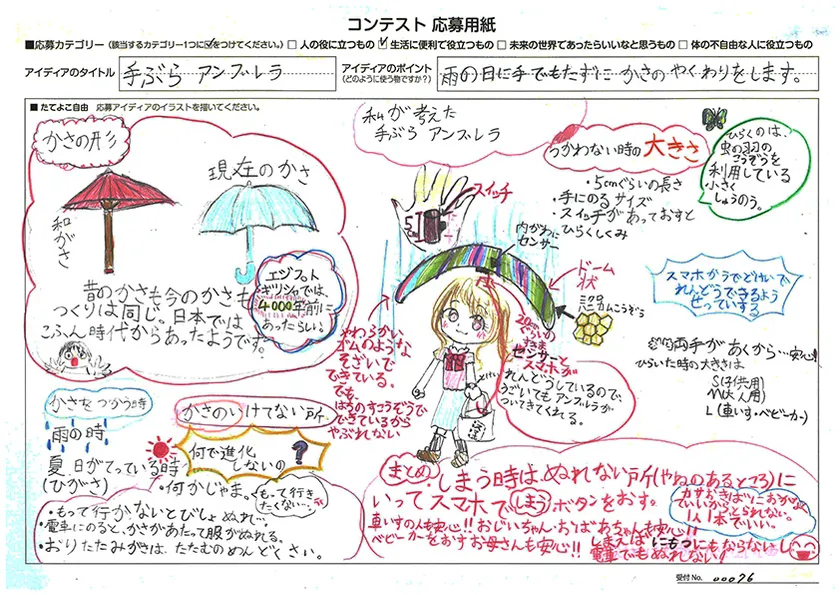 コンテスト 応募用紙
■応募カテゴリー (該当するカテゴリー1つに☑をつけてください。) □ 人の役に立つもの ☑ 生活に便利で役立つもの □ 未来の世界であったらいいなと思うもの □ 体の不自由な人に役立つもの
アイディアのタイトル 手ぶら アンブレラ
アイディアのポイント
(どのように使う物ですか?)
雨の日に手でもたずに かさの やくわりをします。
■ たてよこ自由 応募アイディアのイラストを描いてください。
かさの形
和がさ
現在のかさ
昔のかさも今のかさも
つくりは同じ。日本では
こふん時代からあったようです。
エジプト
ギリシャでは、
4000年前に
あったらしい。
私が考えた
手ぶら アンブレラ
スイッチ
つかわない時の大きさ
・5cmぐらいの長さ
・手にのるサイズ
・スイッチがあっておすと
ひらくしくみ
ひらくのは、
虫の羽の
こうぞうを
利用している
小さく
しゅうのう。
内がわに
センサー
ドーム
状
ハニカムこうぞう
スマホかうでどけいで
れんどうできるよう
せっていする
両手があくから…安心!
ひらいた時の大きさは
S(子供用)
M(大人用)
L(車いす・ベビーカー)
やわらかい
ゴムのような
そざいで
できている。
でも、
はちのすこうぞうで
できているから
やぶれない
センサーと
スマホが
れんどうしているので、
うごいてもアンブレラが
ついてきてくれる。
かさをつかう時
雨の時
夏、日がてっている時
(ひがさ)
かさのいけてない所
何で進化
しないの?
・何かじゃま。
もって行き
たくない…。
・もって行かないとびしょぬれ…
・電車にのると、かさがあたって服がぬれる。
・おりたたみがさは、たたむのめんどくさい。
まとめ
・しまう時は、ぬれない所(やねのあるところ)に
いってスマホでしまうボタンをおす。
車いすの人も安心!! おじいちゃん・おばあちゃんも安心!!
ベビーカーをおすお母さんも安心!! しまえばにもつにもならないし
電車でもぬれない!
かさおきばにおかなくて
いいからとられない。
1人1本でいい。
受付No. 00076